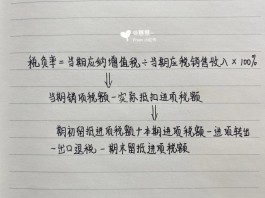 税负率=当期应纳增值税÷当期应税销售收入×100%
⇓
当期销项税额-实际抵扣进项税额
⇓
期初留抵进项税额+本期进项税额-进项转出
-出口退税-期末留抵进项税额